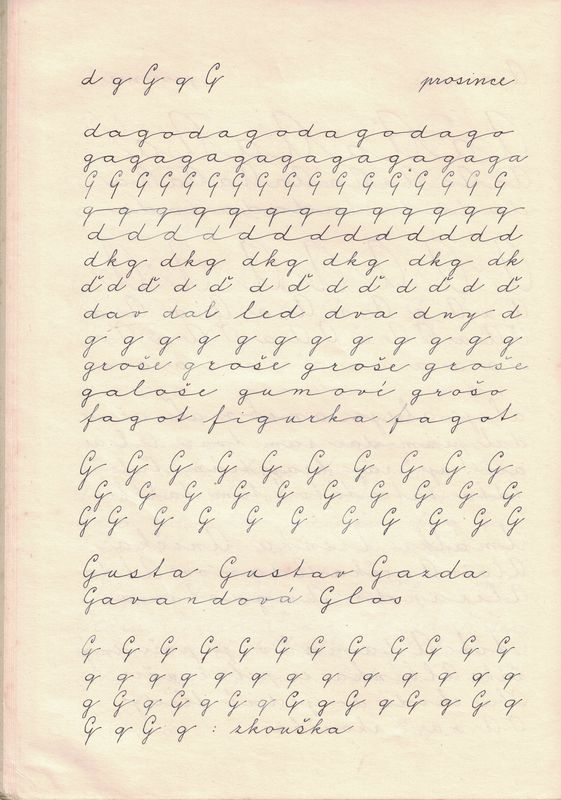 d g G q G prosince
dagodagodagodagodago
gagagagagagagagagaga
G G G G G G G G G G G G G G G G G
g g g g g g g g g g g g g g g g
d d d d d d d d d d d d d d d d
dkg dkg dkg dkg dkg dk
ď d ď d ď d ď d ď d ď d ď d ď
dav dal led dva dny d
g g g g g g g g g g g g g
groše groše groše groše
galoše gumové grošo
fagot figurka fagot
G G G G G G G G G G
G G G G G G G G G G
G G G G G G G G G G
Gusta Gustav Gazda
Gavandová Glos
G G G G G G G G G G G G
q q q q q q q q q q q q q
g G q G g G q G g G q G g q G q
G q G g : zkouška